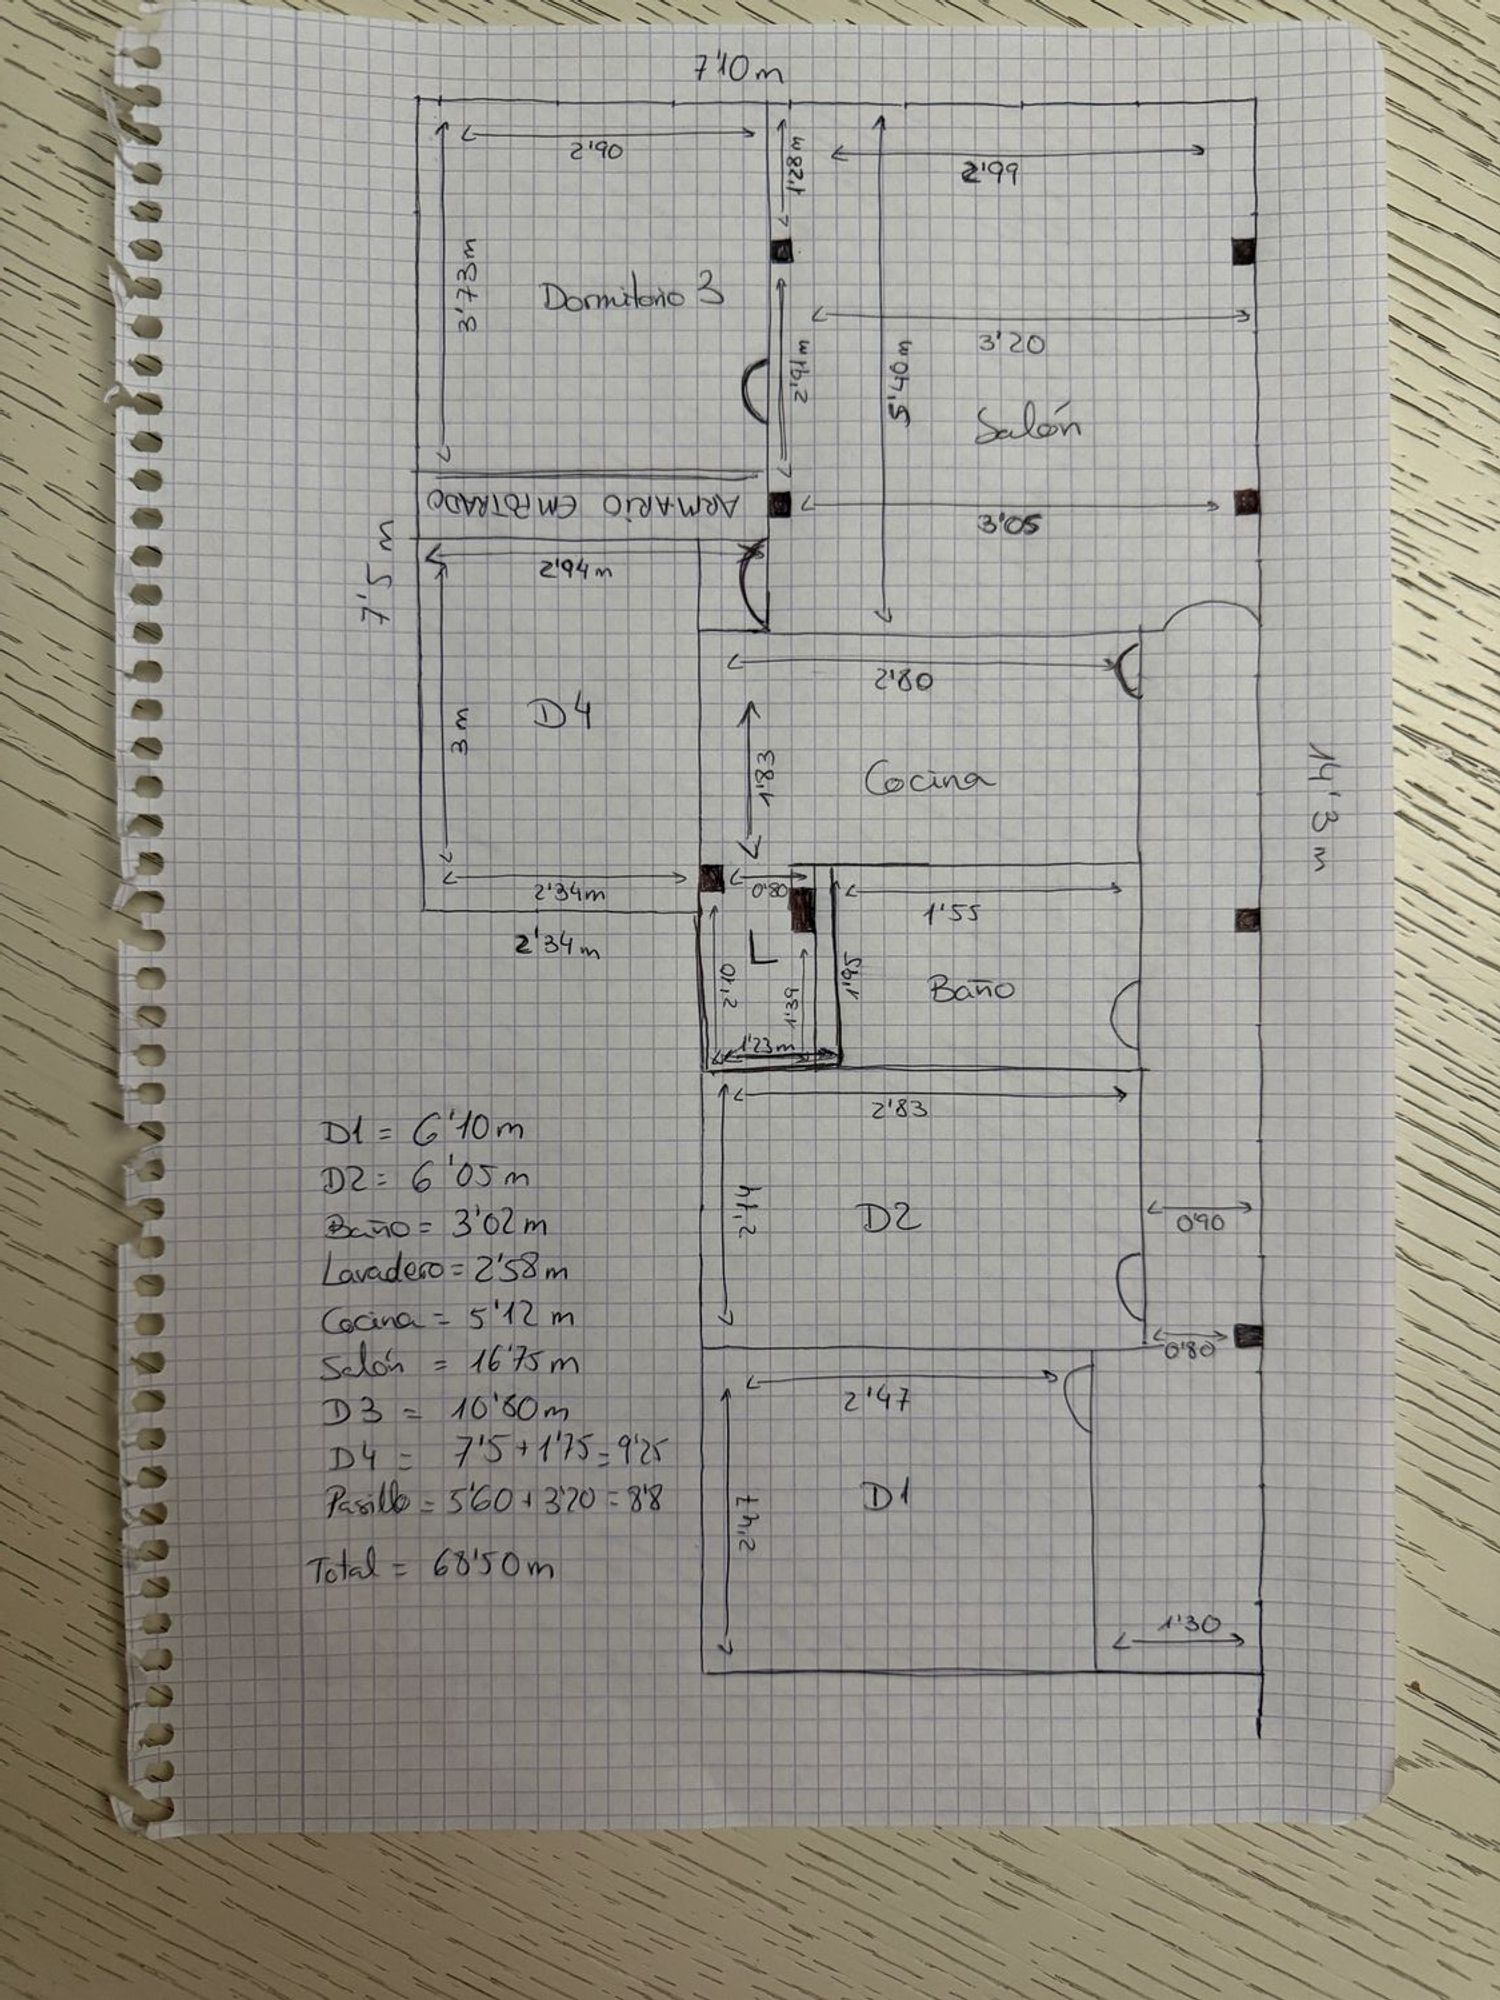 7'10 m
2'90
1'28 m
2'99
3'73 m
Dormitorio 3
3'20
2'91 m
5'40 m
Salón
ARMARIO EMPOTRADO
3'05
7'5 m
2'94 m
2'80
D4
3 m
1'83
Cocina
14'3 m
2'34 m
0'80
1'55
2'34 m
L
2'10
1'39
1'95
Baño
1'23 m
2'83
D1 = 6'10 m
D2 = 6'05 m
2'14
D2
0'90
Baño = 3'02 m
Lavadero = 2'58 m
Cocina = 5'12 m
0'80
Salón = 16'75 m
2'47
D3 = 10'80 m
D4 = 7'5 + 1'75 = 9'25
Pasillo = 5'60 + 3'20 = 8'8
2'47
D1
Total = 68'50 m
1'30